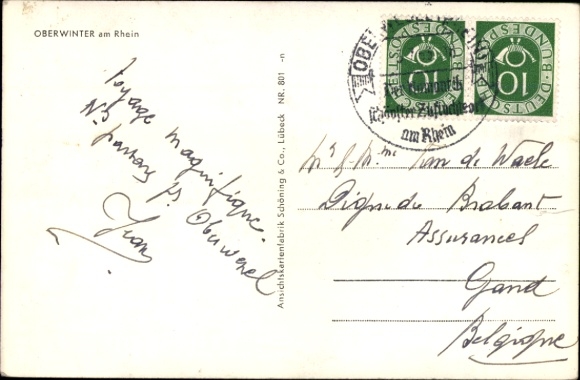 OBERWINTER am Rhein
Voyage magnifique.
Ns passons p. Oberwesel
Jean
Ansichtskartenfabrik Schöning & Co., Lübeck NR. 801 -n
DEUTSCHE BUNDESPOST
10
DEUTSCHE BUNDESPOST
10
am Rhein
Mr & Mme Van de Waele
Digue de Brabant
Assurances
Gand
Belgique